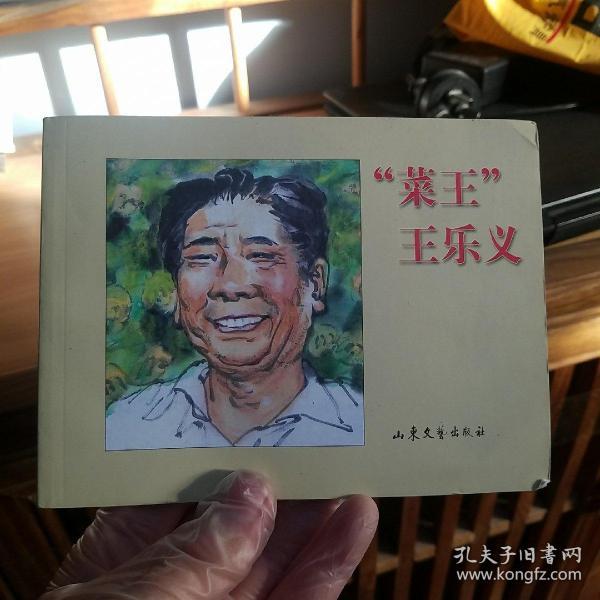 “菜王”
王乐义
山东文艺出版社
孔夫子旧书网
www.kongfz.com